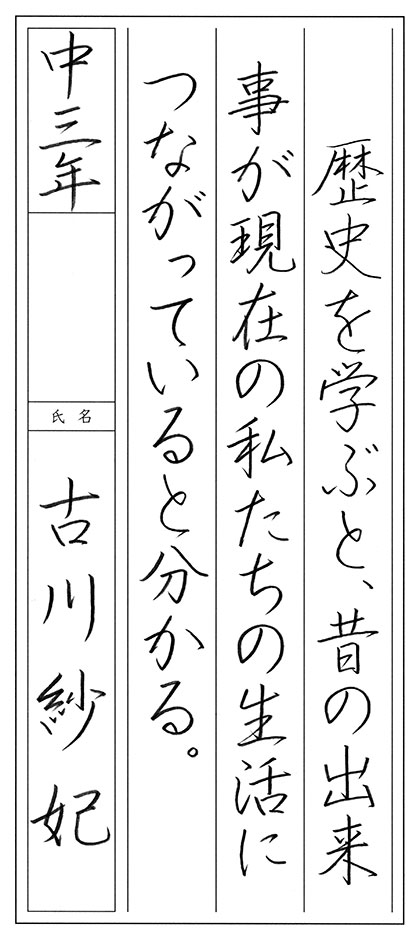 歴史を学ぶと、昔の出来
事が現在の私たちの生活に
つながっていると分かる。
中三年
氏名
古川紗妃